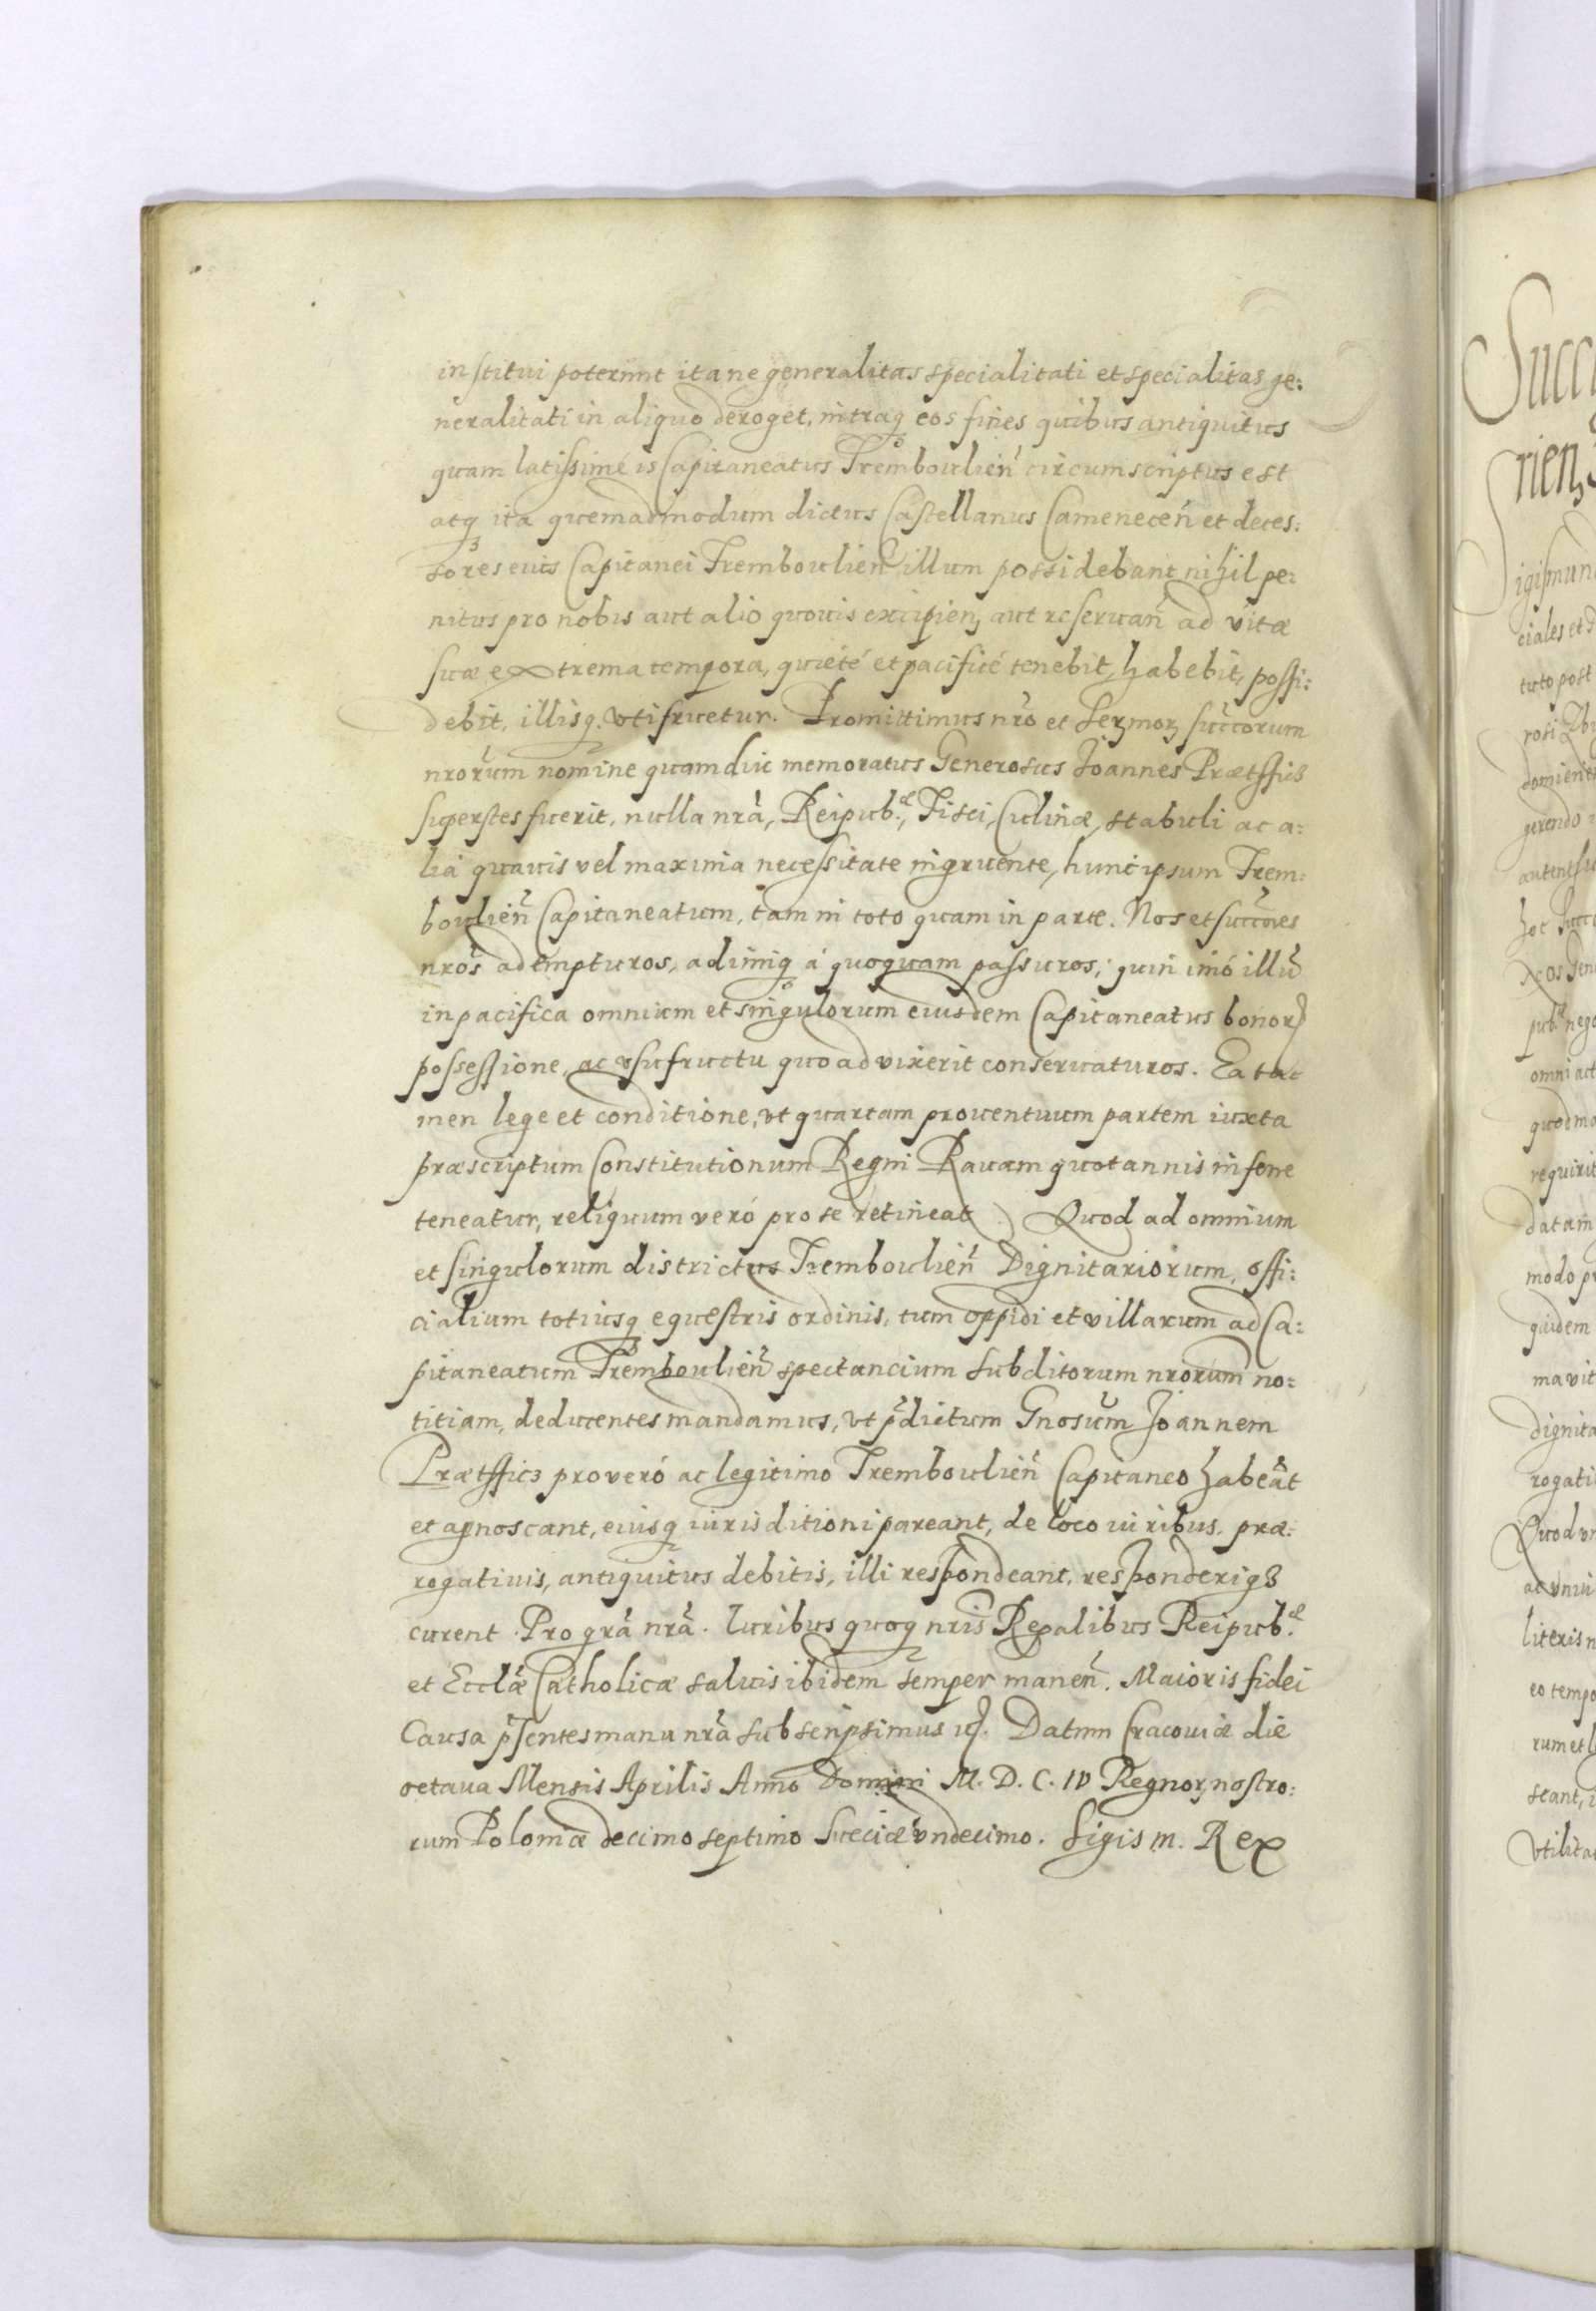 institui poterunt ita ne generalitas specialitati et specialitas ge:
neralitati in aliquo deroget, intraq₃ eos fines quibus antiquitus
quam latissimé is Capitaneatus Tremboulień circumscriptus est
atq₃ ita quemadmodum dictus Castellanus Cameneceń et deces:
sores eius Capitanei Tremboulień illum possidebant nihil pe:
nitus pro nobis aut alio quouis excipień aut reseruań ad vitæ
suæ extrema tempora, quieté et pacificé tenebit, habebit, possi:
debit, illisq₃ vtifruetur. Promittimus nro et Sermorꝫ succorum
nrorum nomine quamdiu memoratus Generosus Joannes Prætffics
superstes fuerit, nulla nrā, Reipub.æ, Fisci, Culinæ, stabuli ac a:
lia quauis vel maxima necessitate ingruente, hunc ipsum Trem:
boulień Capitaneatum, tam in toto quam in parte. Nos et succores
nros adempturos, adimiq₃ á quoquam passuros, quin imó illū
in pacifica omnium et singulorum eiusdem Capitaneatus bonorꝫ
possessione, ac vsufructu quoad vixerit conseruaturos. Ea ta:
men lege et conditione, vt quartam prouentuum partem iuxta
præscriptum Constitutionum Regni Rauam quotannis inferre
teneatur, reliquum veró pro se retineat. Quod ad omnium
et singulorum districtus Tremboulień Dignitariorum, offi:
cialium totiusq₃ equestris ordinis, tum oppidi et villarum ad Ca:
pitaneatum Tremboulień spectancium subditorum nrorum no:
titiam, deducentes mandamus, vt p̄dictum Gnosum Joannem
Prætffics pro veró ac legitimo Tremboulień Capitaneo habeāt
et agnoscant, eiusq₃ iurisditioni pareant, de loco iuribus, præ:
rogatiuis, antiquitus debitis, illi respondeant, responderiq₃
curent. Pro grā nrā. Iuribus quoq₃ nris Regalibus Reipub.æ
et Ecclæ Catholicæ saluis ibidem semper manen̄. Maioris fidei
Causa p̄sentes manu nrā subscripsimus

 Datum Cracouiæ die
octaua Mensis Aprilis Anno Domini M. D. C. IV Regnorꝫ nostro:
rum Poloniæ decimo septimo Sueciæ vndecimo. Sigism. Rex
Succ
rien,
igismun
ciales et
tuto post
rosi
domien
gerendo
autent
hoc Succ
pub.æ nego
omni act
quod mo
requirit
datam
modo p
quidem
ma vit
dignita
rogati
Quod vn
ac vniu
literis n
eo tempo
rum et
seant,
vtilita